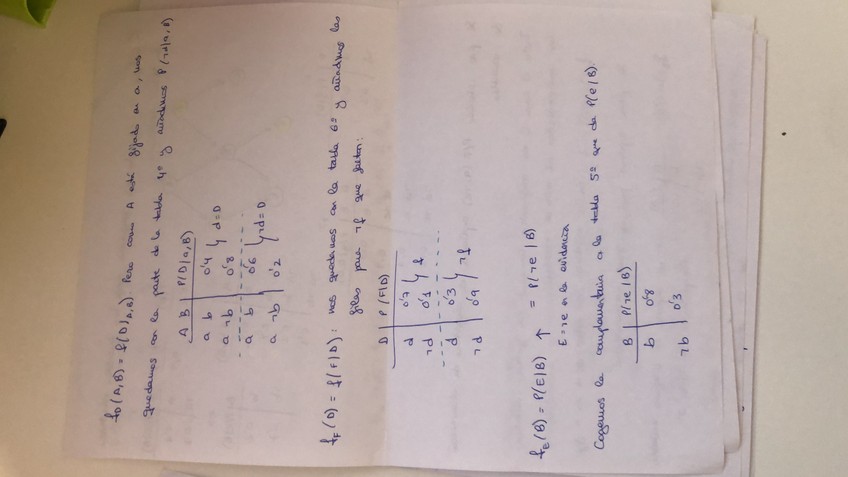 f_D(A,B) = f(D|A,B) Pero como A está fijado en a, nos
quedamos con la parte de la tabla 4ª y añadimos P(¬d|a,B)
A B | P(D|a,B)
a b | 0'4 } d=D
a ¬b | 0'8
a b | 0'6 } ¬d=D
a ¬b | 0'2
f_F(D) = f(F|D): nos quedamos con la tabla 6ª y añadimos las
filas para ¬f que faltan:
D | P(F|D)
d | 0'7 } f
¬d | 0'1
d | 0'3 } ¬f
¬d | 0'9
f_E(B) = P(E|B) ↑ = P(¬e|B)
E=¬e en la evidencia
Cogemos la complementaria a la tabla 5ª que da P(e|B).
B | P(¬e|B)
b | 0'8
¬b | 0'3